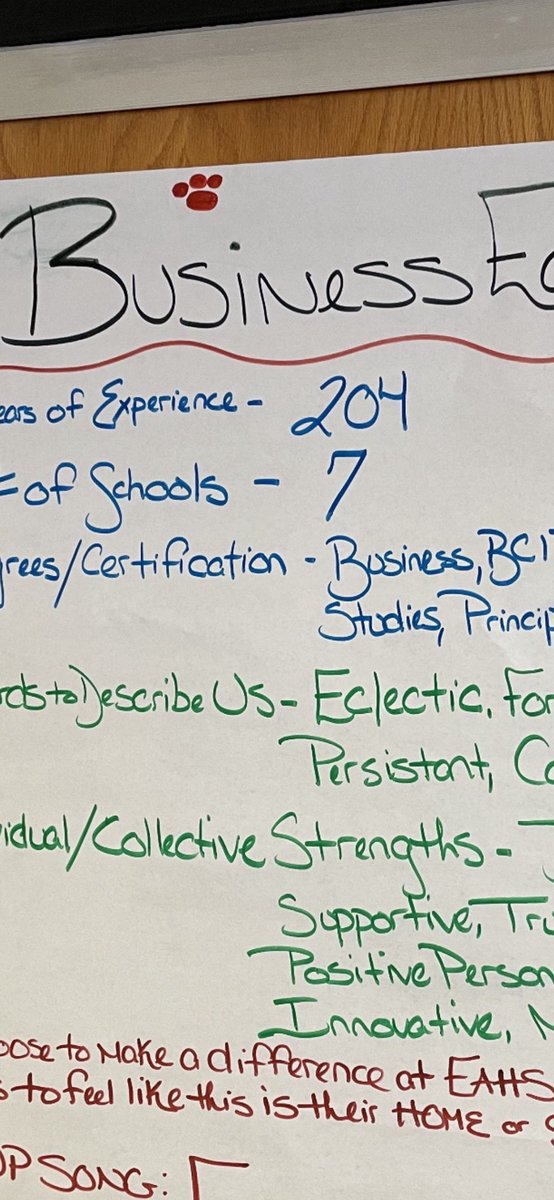 Business Ed
ears of Experience - 204
# of Schools - 7
rees/Certification - Business, BCIT
Studies, Princip
rds to Describe Us - Eclectic, For
Persistant, Co
vidual/Collective Strengths -
Supportive, Tru
Positive Person
Innovative, N
oose to make a difference at EAHS
s to feel like this is their HOME or S
OP SONG: